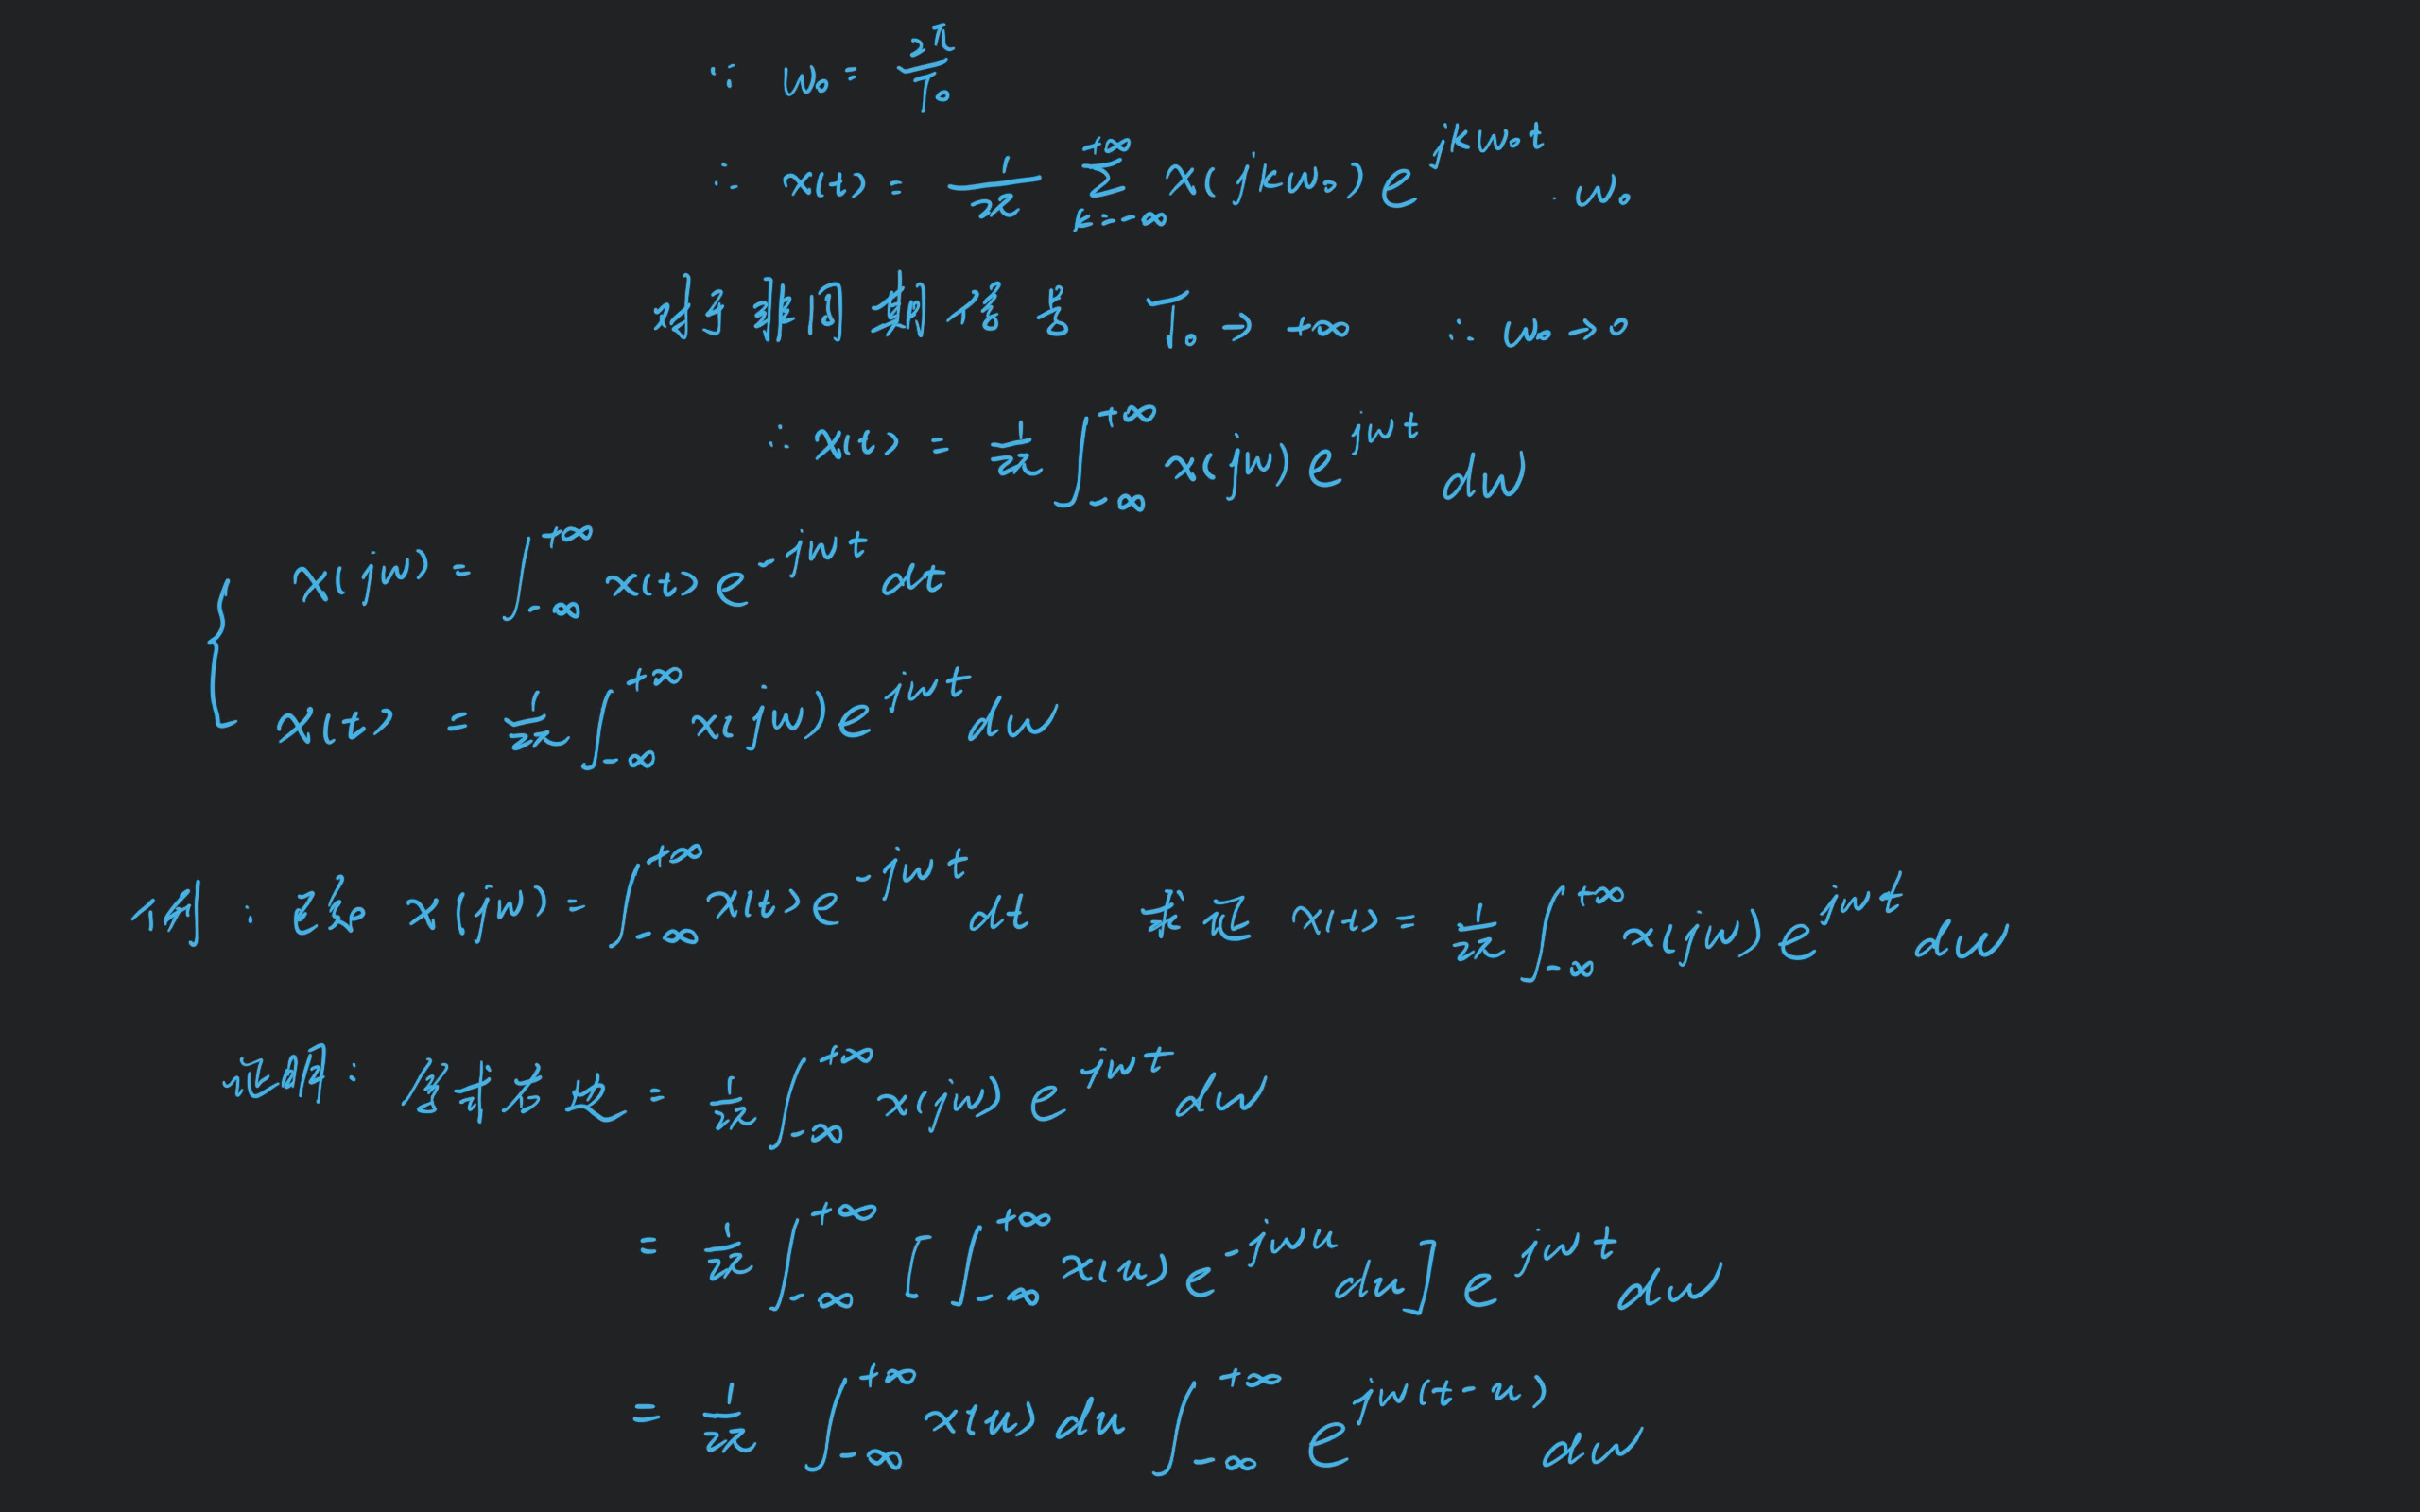 ∵ ω₀ = 2π/T₀
∴ x(t) = 1/2π ∑_{k=-∞}^{+∞} X(jkω₀) e^{jkω₀t} · ω₀
对于非周期信号 T₀ → +∞ ∴ ω₀ → 0
∴ x(t) = 1/2π ∫_{-∞}^{+∞} X(jω) e^{jωt} dω
{ X(jω) = ∫_{-∞}^{+∞} x(t) e^{-jωt} dt
x(t) = 1/2π ∫_{-∞}^{+∞} X(jω) e^{jωt} dω
例: 已知 X(jω) = ∫_{-∞}^{+∞} x(t) e^{-jωt} dt 求证 x(t) = 1/2π ∫_{-∞}^{+∞} X(jω) e^{jωt} dω
证明: 等式右边 = 1/2π ∫_{-∞}^{+∞} X(jω) e^{jωt} dω
= 1/2π ∫_{-∞}^{+∞} [ ∫_{-∞}^{+∞} x(u) e^{-jωu} du ] e^{jωt} dω
= 1/2π ∫_{-∞}^{+∞} x(u) du ∫_{-∞}^{+∞} e^{jω(t-u)} dω